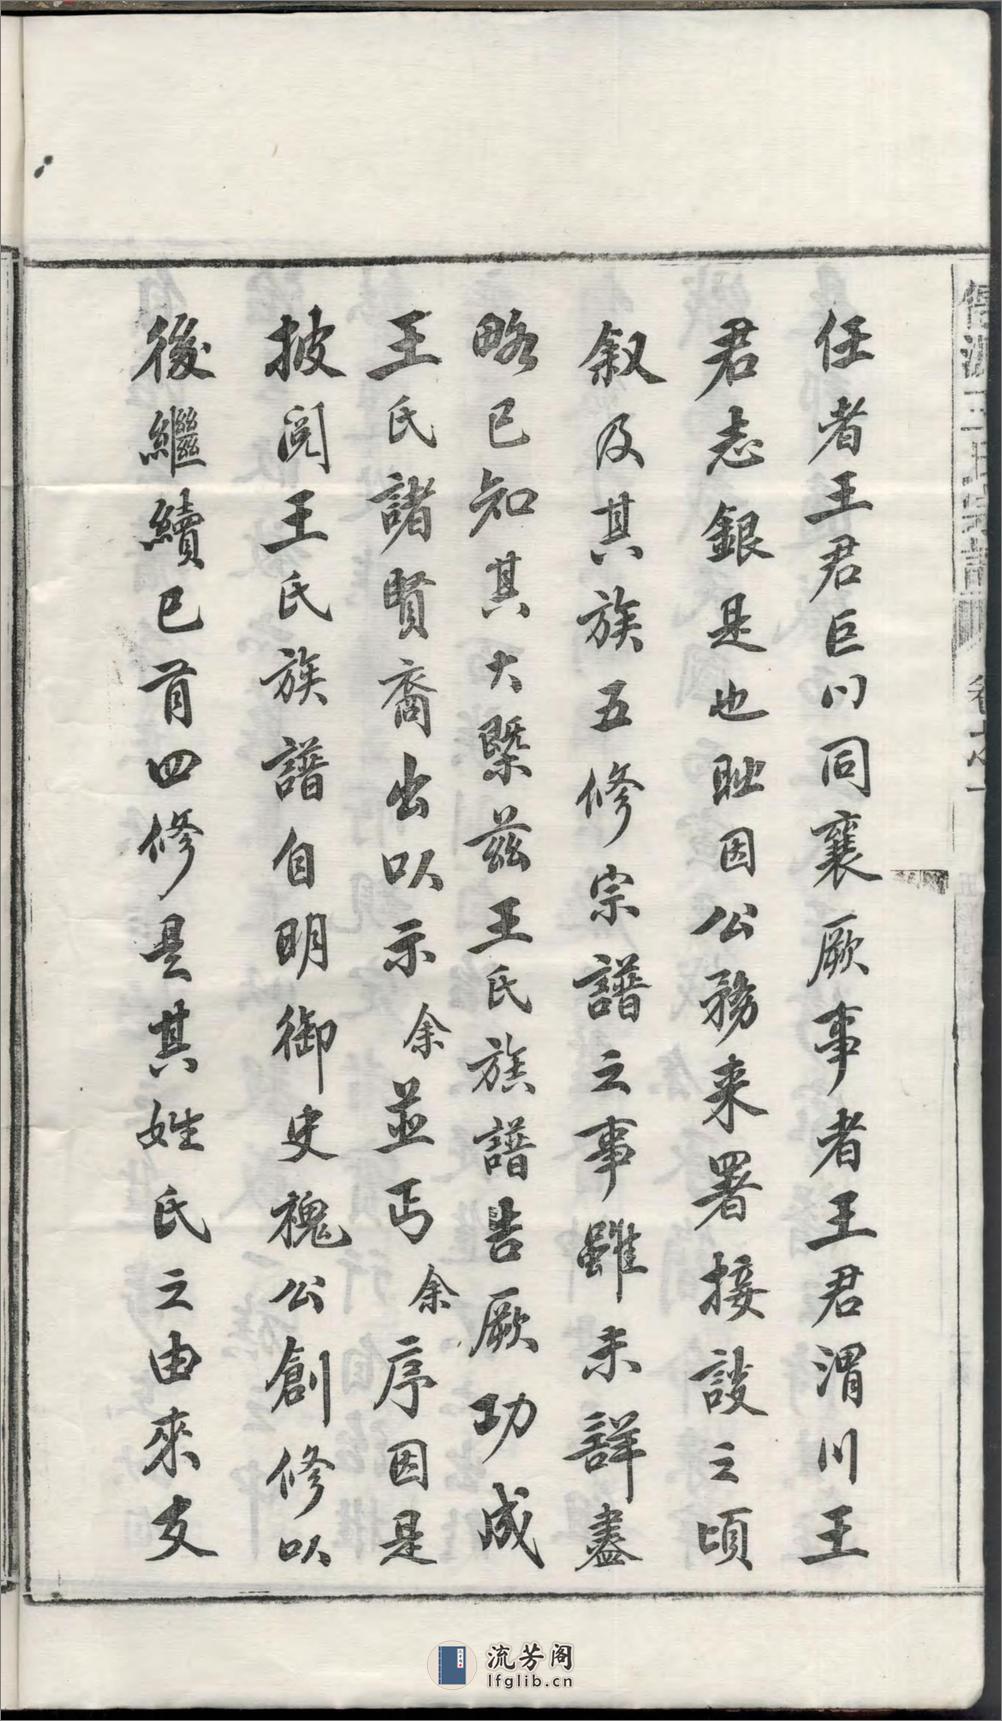 任者王君巨川同襄厥事者王君渭川王
君志銀是也耿因公務来署接談之頃
叙及其族五修宗譜之事雖未詳盡
略已知其大槩兹王氏族譜告厥功成
王氏諸賢裔出以示余並丐余序因是
披阅王氏族譜自明御史槐公創修以
後繼續已首四修是其姓氏之由來支
王氏宗譜
卷之一
流芳阁
lfglib.cn